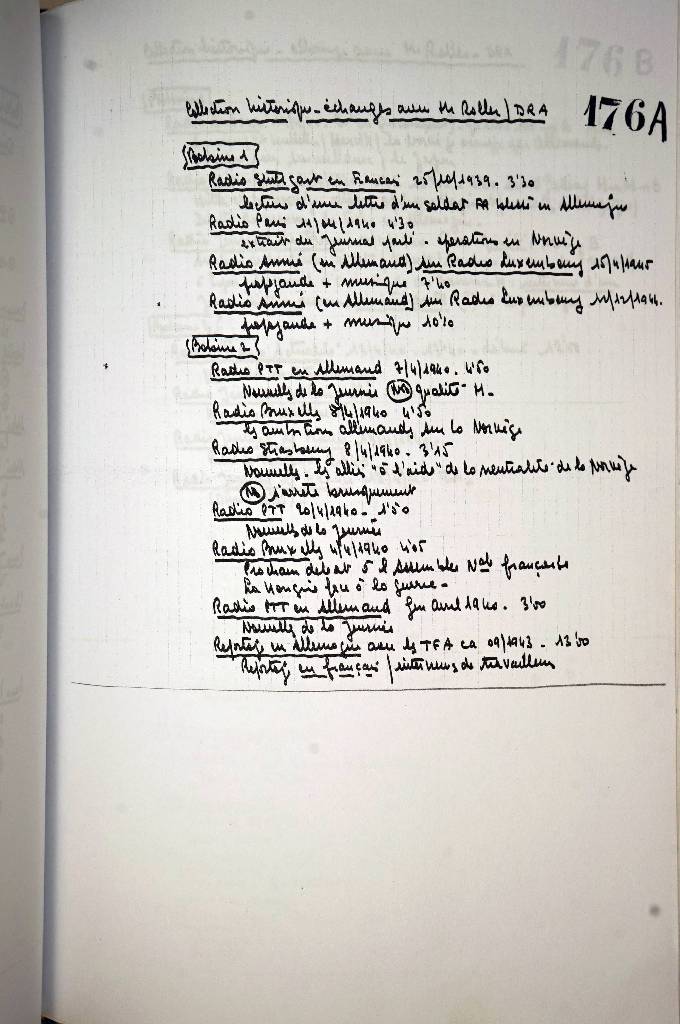 Collection historique - échanges avec Mr Roller / DRA
176A
Bobine 1
Radio Stuttgart en Français 25/10/1939. 3'30
lecture d'une lettre d'un soldat FR blessé en Allemagne
Radio Paris 11/04/1940 4'30
extrait du Journal parlé. opérations en Norvège
Radio Annie (en Allemand) sur Radio Luxembourg 15/4/1945
propagande + musique 7'40
Radio Annie (en Allemand) sur Radio Luxembourg /12/1944.
propagande + musique 10'10
Bobine 2
Radio PTT en Allemand 7/4/1940. 4'50
Nouvelles de la Journée qualité M-
Radio Bruxelles 8/4/1940 4'50
les ambitions allemandes sur la Norvège
Radio Strasbourg 8/4/1940. 3'15
Nouvelles. les alliés "à l'aide" de la neutralité de la Norvège
s'arrête brusquement
Radio PTT 20/4/1940 - 1'50
Nouvelles de la Journée
Radio Bruxelles 4/4/1940 4'05
Prochain débat à l'Assemblée Nale française
La Hongrie face à la guerre -
Radio PTT en Allemand fin avril 1940. 3'00
Nouvelles de la Journée
Reportage en Allemagne avec les ca 09/1943 - 13'50
Reportage en français / interviews de travailleurs